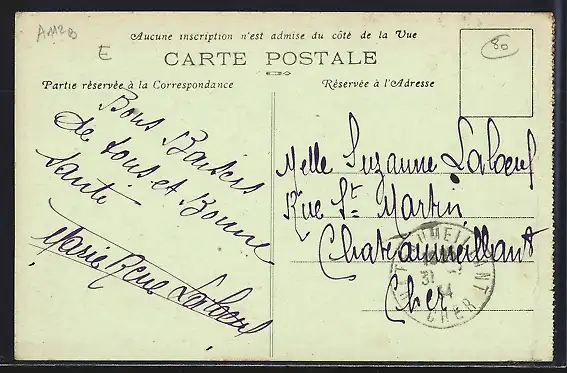 A1120
E
80
Aucune inscription n'est admise du côté de la Vue
CARTE POSTALE
Partie réservée à la Correspondance
Réservée à l'Adresse
Bons Baisers
de tous et Bonne
Santé
Marie Laboeuf
Melle Suzanne Laboeuf
Rue St Martin
Chateaumeillant
Cher
CHATEAUMEILLANT
31
CHER